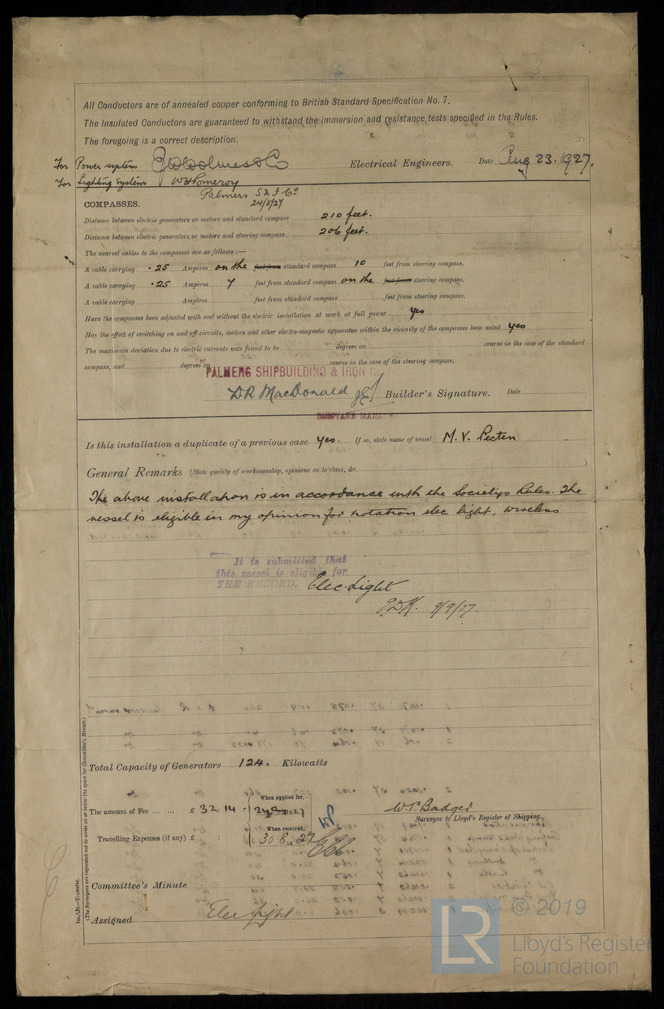 All Conductors are of annealed copper conforming to British Standard Specification No. 7.
The Insulated Conductors are guaranteed to withstand the immersion and resistance tests specified in the Rules.
The foregoing is a correct description.
For Power system J H Holmes & Co Electrical Engineers. Date Aug 23. 1927.
For Lighting System W H Pomeroy
Palmers S & I Co
24/8/27
COMPASSES.
Distance between electric generators or motors and standard compass 210 feet.
Distance between electric generators or motors and steering compass 206 feet.
The nearest cables to the compasses are as follows :—
A cable carrying .25 Amperes on the feet from standard compass 10 feet from steering compass.
A cable carrying .25 Amperes 7 feet from standard compass on the feet from steering compass.
A cable carrying Amperes feet from standard compass feet from steering compass.
Have the compasses been adjusted with and without the electric installation at work at full power. yes
Has the effect of switching on and off circuits, motors and other electro-magnetic apparatus within the vicinity of the compasses been noted yes
The maximum deviation due to electric currents was found to be degrees on course in the case of the standard
compass, and degrees on course in the case of the steering compass.
For
PALMERS SHIPBUILDING & IRON Co
D.R. MacDonald Builder's Signature. Date
SHIPYARD MANAGER
Is this installation a duplicate of a previous case yes. If so, state name of vessel M.V. Pecten
General Remarks (State quality of workmanship, opinions as to class, &c.
The above installation is in accordance with the Societys Rules. The
vessel is eligible in my opinion for notation elec light, wireless
It is submitted that
this vessel is eligible for
THE RECORD. Elec. Light
9/9/27
Total Capacity of Generators 124. Kilowatts
The amount of Fee ... ... £ 32 : 14 :
When applied for,
24 Aug 1927
When received,
Travelling Expenses (if any) £ : : 30.8.1927
W. T. Badger
Surveyor to Lloyd's Register of Shipping.
Committee's Minute
Assigned Elec Light
Im.3,26.—Transfer.
(The Surveyors are requested not to write on or below the space for Committee's Minute.)
LR
© 2019
Lloyd's Register
Foundation